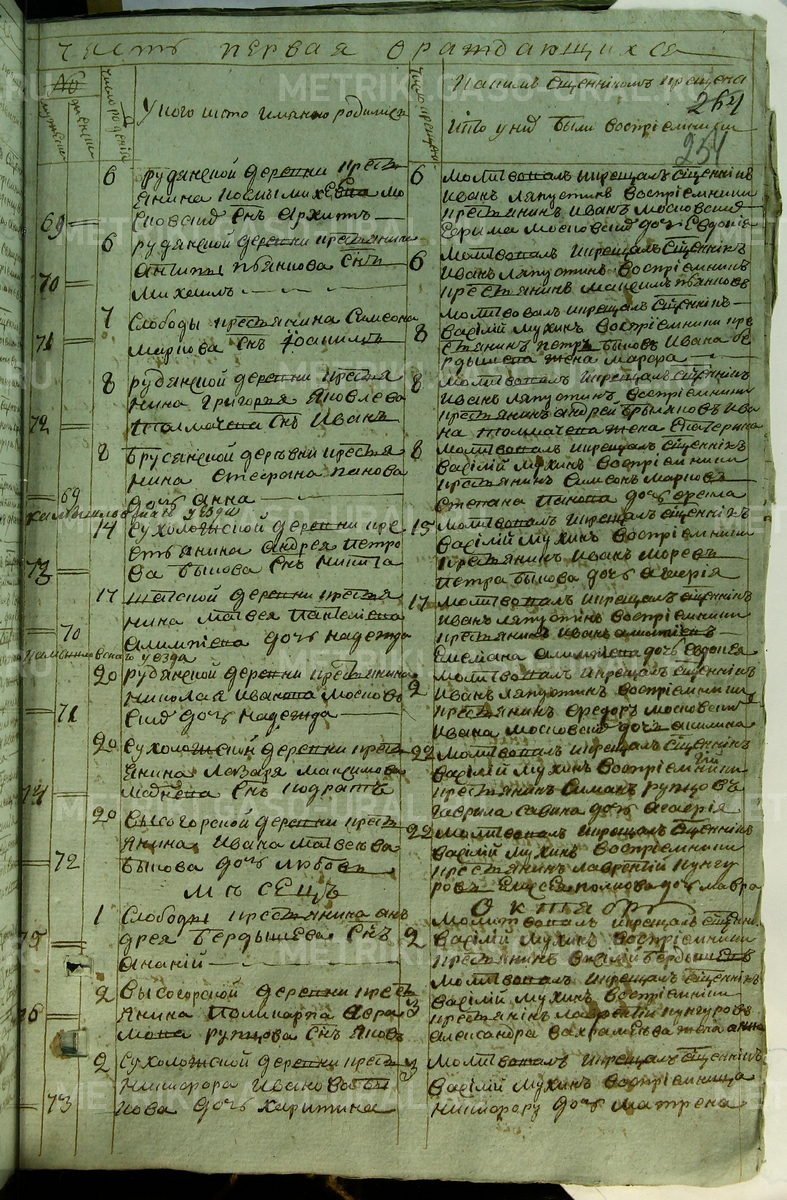 часть первая о раждающихся
№
мужеска
женска
число рождения
У кого кто имянно родился
число крещения
Каким священником крещена
264
Кто у них были восприемники
251
6 рудянской деревни кресть
янина мо
69 сковских снъ Архипъ
6 молитвовалъ и крещалъ священникъ
иванъ ляпустинъ восприемники
крестьянинъ иванъ московских
Ефима московских дочь Евдокия
6 рудянской деревни крестьянина
70 антипы пьянкова снъ
михаилъ
6 молитвовалъ и крещалъ священникъ
иванъ ляпустинъ восприемникъ
крестьянинъ максимъ пьянковъ
7 слободы крестьянина симеона
71 маркова снъ Иоакимъ
8 молитвовалъ и крещалъ священникъ
василий мухинъ восприемники кре
стьянинъ петръ быковъ ивана бе
рдышева жена марфа
8 рудянской деревни крестья
нина григорья яковлева
72 толмачева снъ иванъ
8 молитвовалъ и крещалъ священникъ
иванъ ляпустинъ восприемники
крестьянинъ андрей брылковъ ива
на толмачева жена екатерина
8 брусянской деревни крестья
нина стефана панова
69 дочь анна
8 молитвовалъ и крещалъ священникъ
василий мухинъ восприемники
крестьянинъ симеонъ марковъ
степана панова дочь фекла
камышловского уезда
14 сухоложской деревни кре
стьянина андрея петро
73 ва быкова снъ никита
15 молитвовалъ и крещалъ священникъ
василий мухинъ восприемники
крестьянинъ иванъ моревъ
петра быкова дочь
17 деревни крестья
нина матвея
70 алимпиева дочь надежда
17 молитвовалъ и крещалъ священникъ
иванъ ляпустинъ восприемники
крестьянинъ иванъ алимпиевъ
емельяна алимпиева дочь евдокея
камышловского уезда
20 рудянской деревни крестьянина
николая иванова москов
71 ских дочь надежда
2 молитвовалъ и крещалъ священникъ
иванъ ляпустинъ восприемники
крестьянинъ федоръ московских
ивана московских дочь акилина
20 сухоложской деревни кресть
янина лазаря максимова
74 снъ кодратъ
22 молитвовалъ и крещалъ священникъ
василий мухинъ восприемники
крестьянинъ симанъ рупцовъ
гаврила савина дочь
20 высогорской деревни кресть
янина ивана матвеева
72 быкова дочь любовь
22 молитвовалъ и крещалъ священникъ
василий мухинъ восприемники
крестьянинъ лаврентий кунгу
ровъ дочь мавра
мѣсецъ Октябрь
1 слободы крестьянина ан
75 дрея бердышева снъ
ананий
2 молитвовалъ и крещалъ священни
василий мухинъ восприемники
крестьянинъ василий бердышевъ
2 высогорской деревни кресть
76 янина поликарпа авра
мова рупцова снъ яковъ
3 молитвовалъ и крещалъ священникъ
василий мухинъ восприемники
крестьянинъ лаврентий кунгуровъ
александра вахрамеева жена анна
2 сухоложской деревни кресть
никифора иванова бы
73 кова дочь харитина
3 молитвовалъ и крещалъ священникъ
василий мухинъ восприемница
никифору дочь матрена